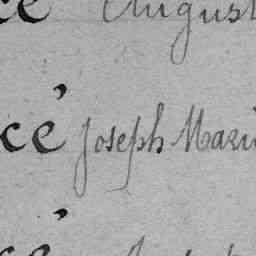 cé August
cé Joseph Marie
cé